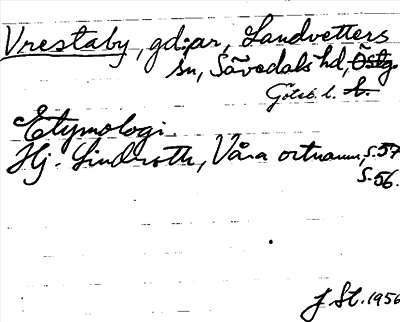 Vrestaby, gd:ar, Landvetters
sn, Sävedals hd, Östg.
Göteb. l. L.
Etymologi.
Hj. Lindroth, Våra ortnamn, s. 57
s. 56.
J St. 1956